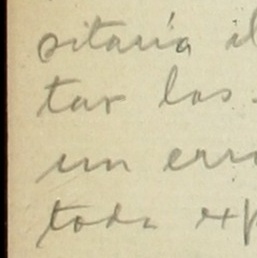 sitaria il
tar las
un erro
toda exp